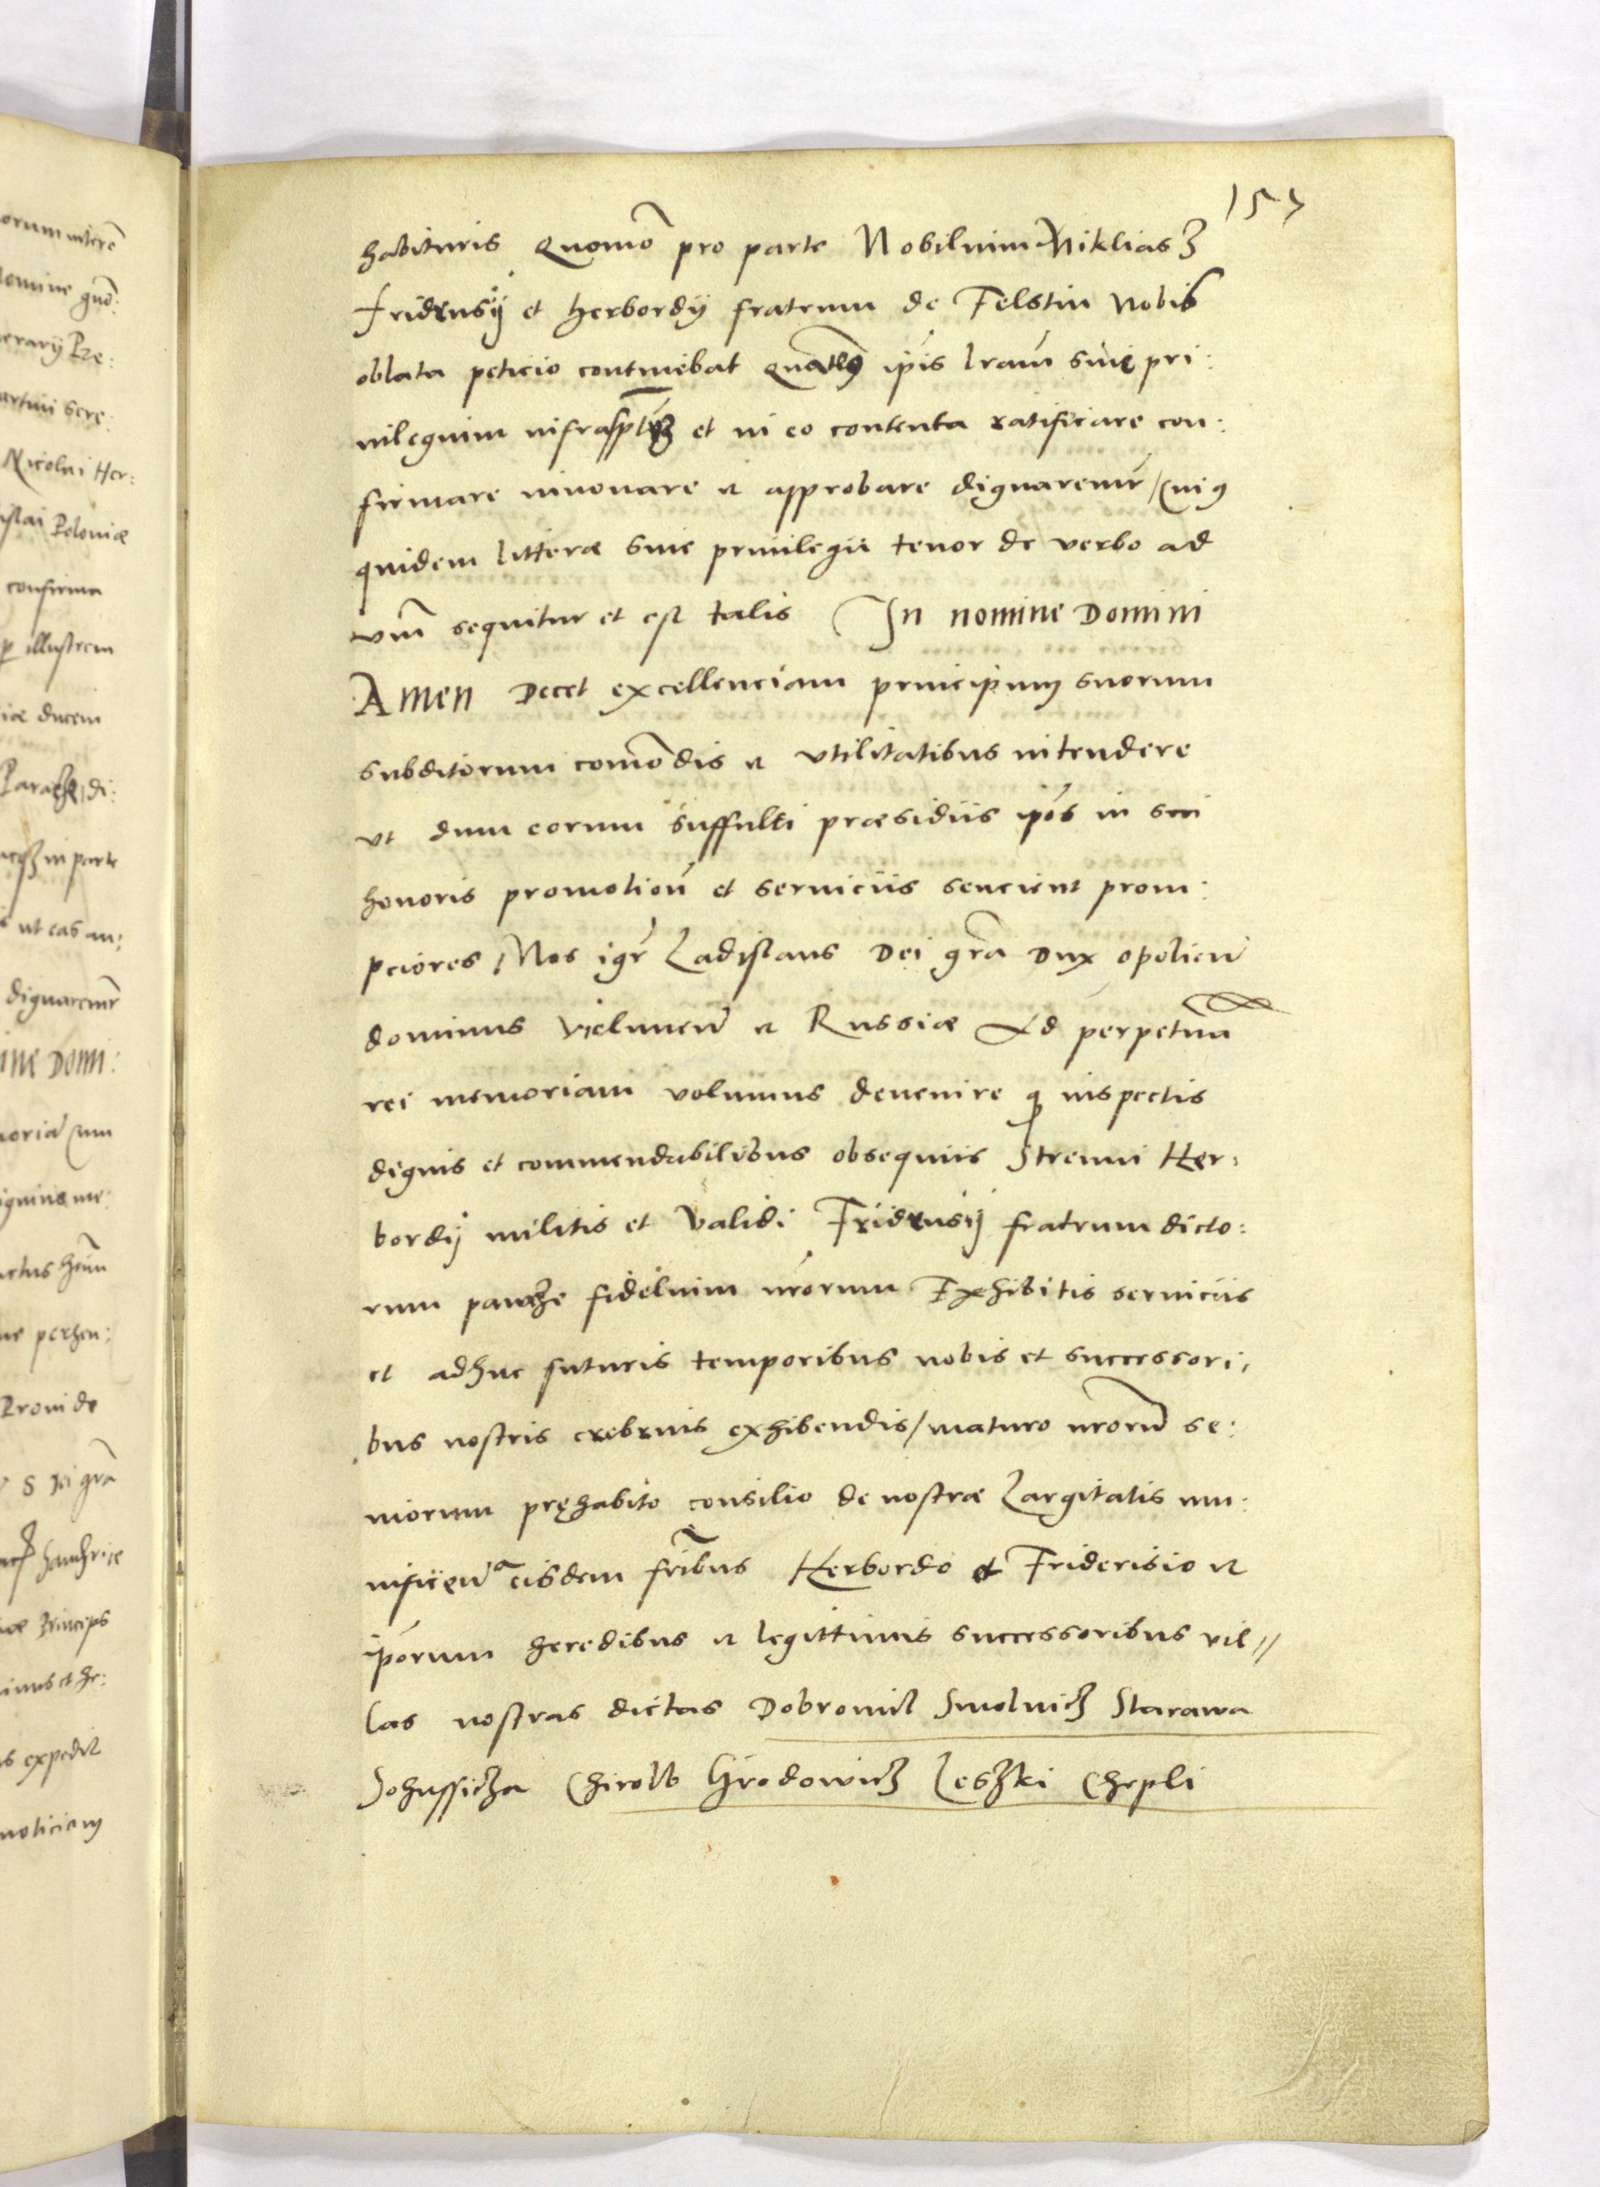 157
habituris Quomō pro parte Nobilium Nikliasz
Fridrusÿ et herbordÿ fratrum de Felstin Nobis
oblata peticio continebat Quaten9 ip̄is lr̄am siue pri:
uilegium infrasp̄tū et in eo contenta ratificare con:
firmare innouare et approbare dignaremr̄ / Cui9
quidem litteræ siue priuilegii tenor de verbo ad
vm̄ sequitur et est talis In nomine Domini
Amen Decet excellenciam principum suorum
subditorum comōdis et vtilitatibus intendere
vt dum eorum suffulti præsidiis ip̄os in sui
honoris promotiōn et seruiciis senciant prom:
pciores / Nos igr̄ Ladislaus Dei gr̄a Dux opolien̄
dominus vielunen̄ et Russiæ Ad perpetua
rei memoriam volumus deuenire q inspectis
dignis et commendabilibus obsequiis Strenui Her:
bordÿ militis et validi Fridrusÿ fratrum dicto:
rum pawcze fidelium nr̄orum Exhibitis seruiciis
et adhuc futuris temporibus nobis et successori:
bus nostris crebrius exhibendis / maturo nr̄orū se:
niorum pręhabito consilio de nostræ Largitatis mu:
nificen̄a eisdem fr̄ibus Herbordo et Friderisio et
ip̄orum heredibus et legittimis successoribus vil//
las nostras dictas Dobromil Smolnicz Starawa
Sohussicza Chirow Hrodowicz Leszki Chepli
orum interē
nomine quō:
Nicolai Her:
Poloniæ
confirma
p illustrem
ducem
in parte
ut eas
dignaremr̄
ine Domi:
Proui de
Dei gr̄a
Princeps
expedit
noticiam